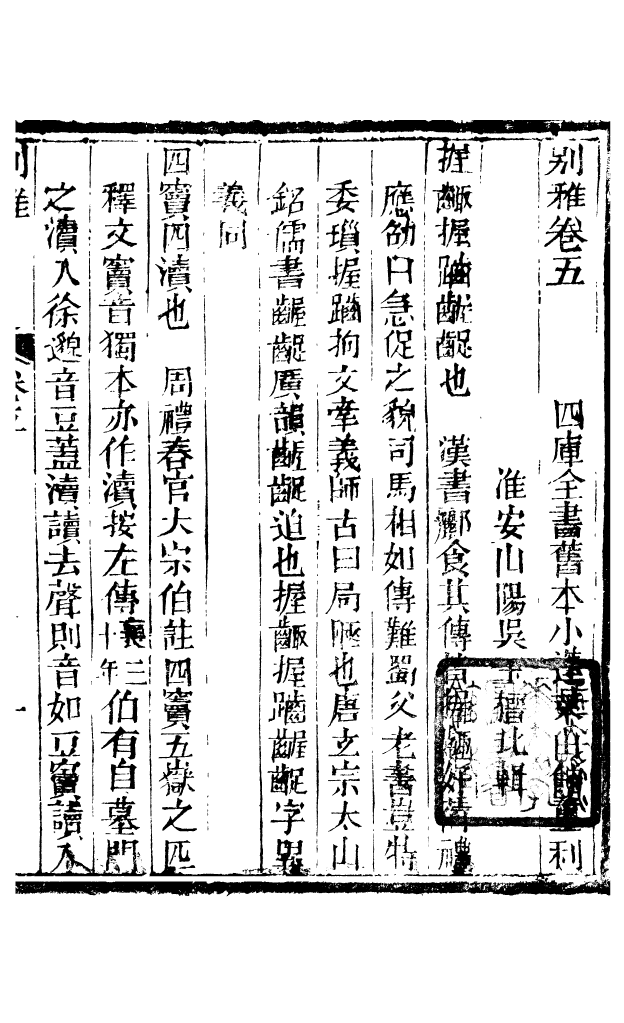 别雅卷五　　四庫全書舊本小蓬萊山館重刊
淮安山陽吳玉搢北輯
握齱握䠱齷齪也　漢書酈食其傳 握齱好 禮
應劭曰急促之貌司馬相如傳難蜀父老書豈特
委瑣握䠱拘文牽義師古曰局陿也唐玄宗太山
銘儒書齷齪廣韻齷齪迫也握齱握䠱齷齪字異
義同
四竇四瀆也　周禮春官大宗伯註四竇五嶽之匹
釋文竇音獨本亦作瀆按左傳襄三十年伯有自墓門
之瀆入徐邈音豆蓋瀆讀去聲則音如豆竇讀入
别雅　卷五　一